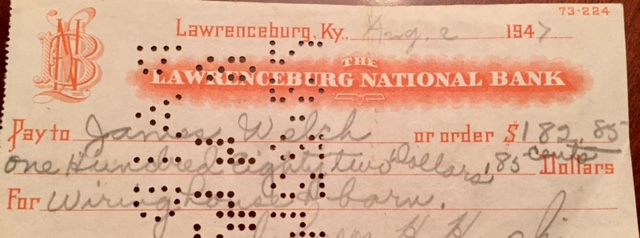 73-224
Lawrenceburg, Ky., Aug. 2 1947
THE
LAWRENCEBURG NATIONAL BANK
Pay to Janiss Welch or order $182.85
one Hundred eighty two Dollars 85 cents Dollars
For Wiring house & barn.